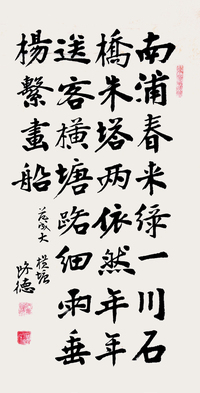 南浦春来绿一川石
橋朱塔两依然年年
送客横塘路细雨垂
楊繫畫船
范成大 横塘